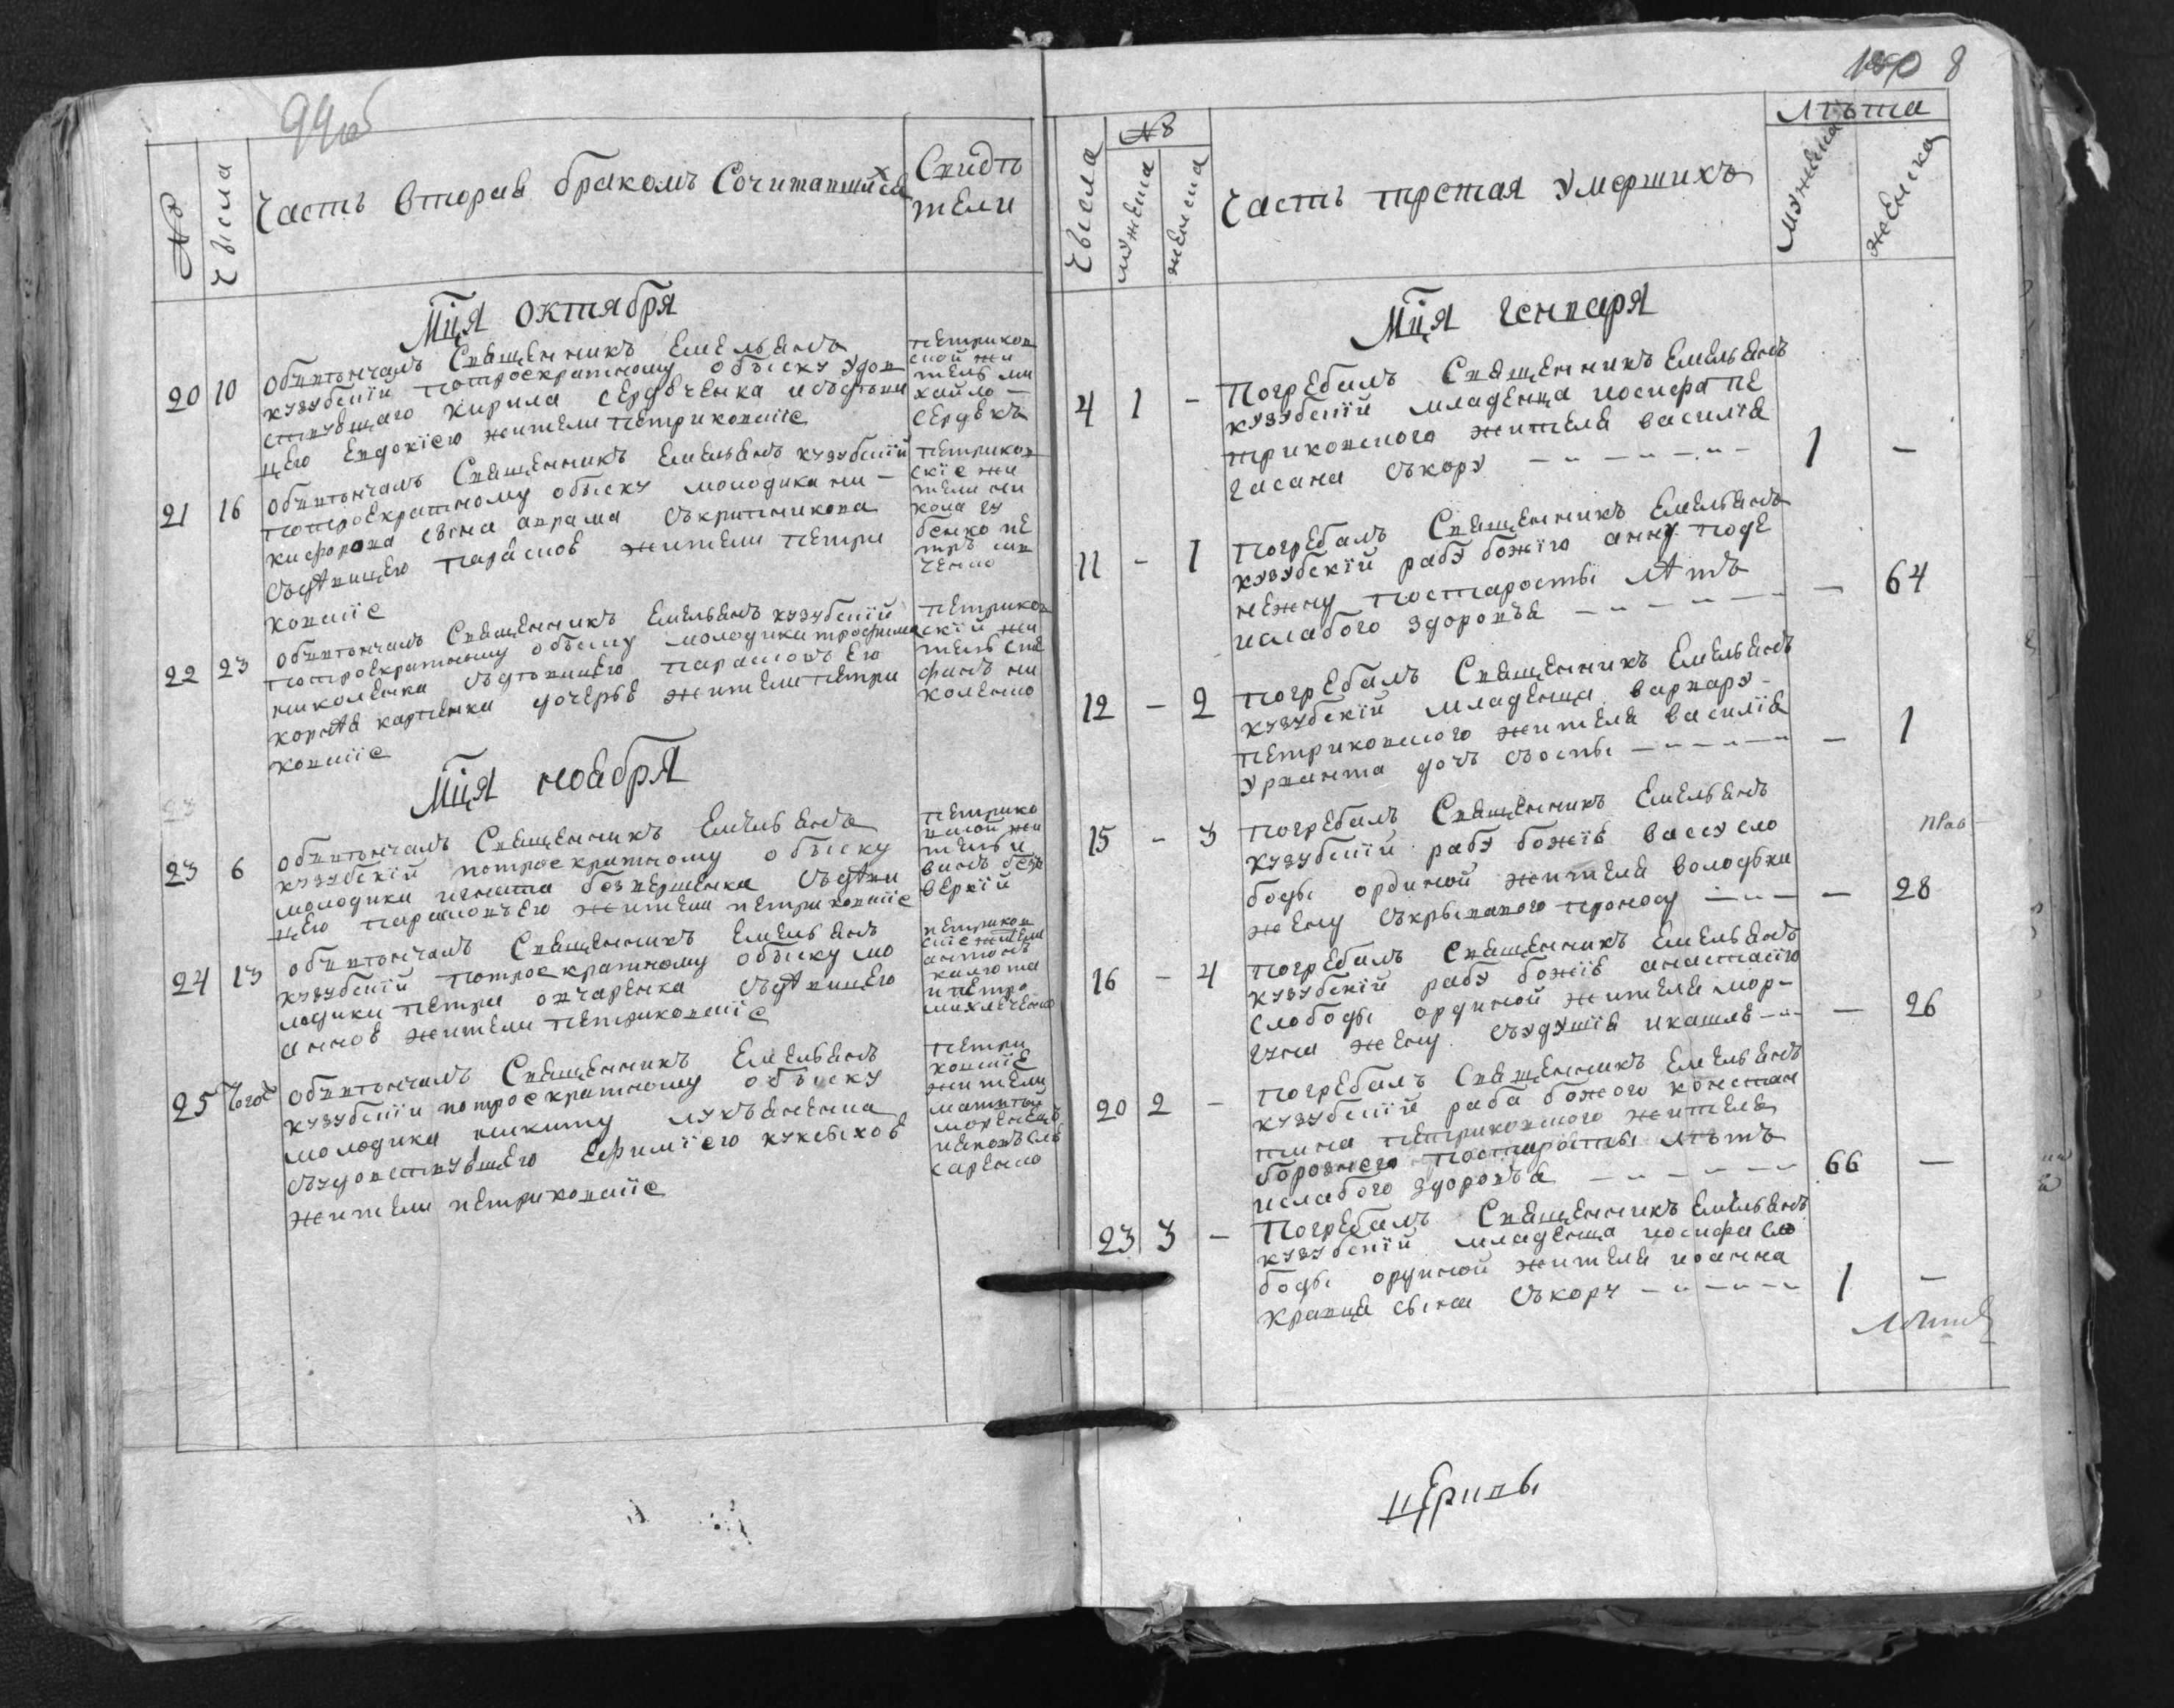 99 об
№
Числа
Часть вторая бракомъ Сочитавшихся
Свидѣ
тели
Мця октября
20 10 Обвѣнчалъ Священникъ Емельянъ
кузубскїй потроекратному обыску удов
ствующаго кирила сердюченка издѣви
цею Евдокїею жители петриковскїе
петриков
ской жи
тель ми
хайло —
сердюкъ
21 16 Обвѣнчалъ Священникъ Емельянъ кузубскїй
потроекратному обыску молодика ни —
кифорова сына аврама скрипникова
сдѣвицею параскою жители петри
ковскїе
петриков
скїе жи
тели ни
кола гу
бенко пе
тръ
ченко
22 23 Обвѣнчалъ Священникъ Емельянъ кузубскїй
потроекратному обыску молодика трофима
николенка сдѣвицею парасковъею
корнѣя карпенка дочерью жители петри
ковскїе
петриков
скїй жи
тель сте
фанъ ни
коленко
Мця ноября
23 6 Обвѣнчалъ Священникъ Емельянъ
кузубскїй потроекратному обыску
молодика игната безвершенка сдѣви
цею парасковъею жители петриковскїе
петрико
вской жи
тель и
ванъ без
веркїй
24 13 обвѣнчалъ Священникъ Емельянъ
кузубскїй потроекратному обыску мо
лодика петра овчаренка сдѣвицею
анною жители петриковскїе
петриков
скїе жители
антонъ
калюта
и петро
михлеченко
25 Тогож Обвѣнчалъ Священникъ Емельянъ
кузубскїй потроекратному обыску
молодика никиту лукъяненка
сзудовствующею Ефимїею куксыхою
жители петриковскїе
петри
ковскїе
жители
матвѣй
моренецъ
саренко
180 8
Числа
№
мужеска
женска
Часть третая умершихъ
Лѣта
мужеска
женска
Мця генваря
4 1 — Погребалъ Священникъ Емельянъ
кузубскїй младенца иосифа пе
триковского жителя василїя
гасана скору — — — 1 —
11 — 1 Погребалъ Священникъ Емельянъ
кузубскїй рабу божїю анну поде
нежну постарости лѣтъ
ислабого здоровъя — — — — 64
12 — 2 Погребалъ Священникъ Емельянъ
кузубскїй младенца варвару —
петриковского жителя василїя
урванта дочъ своспы — — — — 1
15 — 3 Погребалъ Священникъ Емельянъ
кузубскїй рабу божїю вассу сло
боды ординой жителя володъки
жену скрывавого проносу — — — 28
16 — 4 Погребалъ Священникъ Емельянъ
кузубскїй рабу божїю анастасїю
слободы ординой жителя мор —
гуна жену сзудушїя икашлю — — 26
20 2 — Погребалъ Священникъ Емельянъ
кузубскїй раба божого констан
тина петриковского жителя
боровнего постарости лѣтъ
ислабого здоровъя — — — 66 —
23 3 — Погребалъ Священникъ Емельянъ
кузубскїй младенца иосифа сло
боды ординой жителя иоанна
кравца сына скору — — — 1 —
церквы